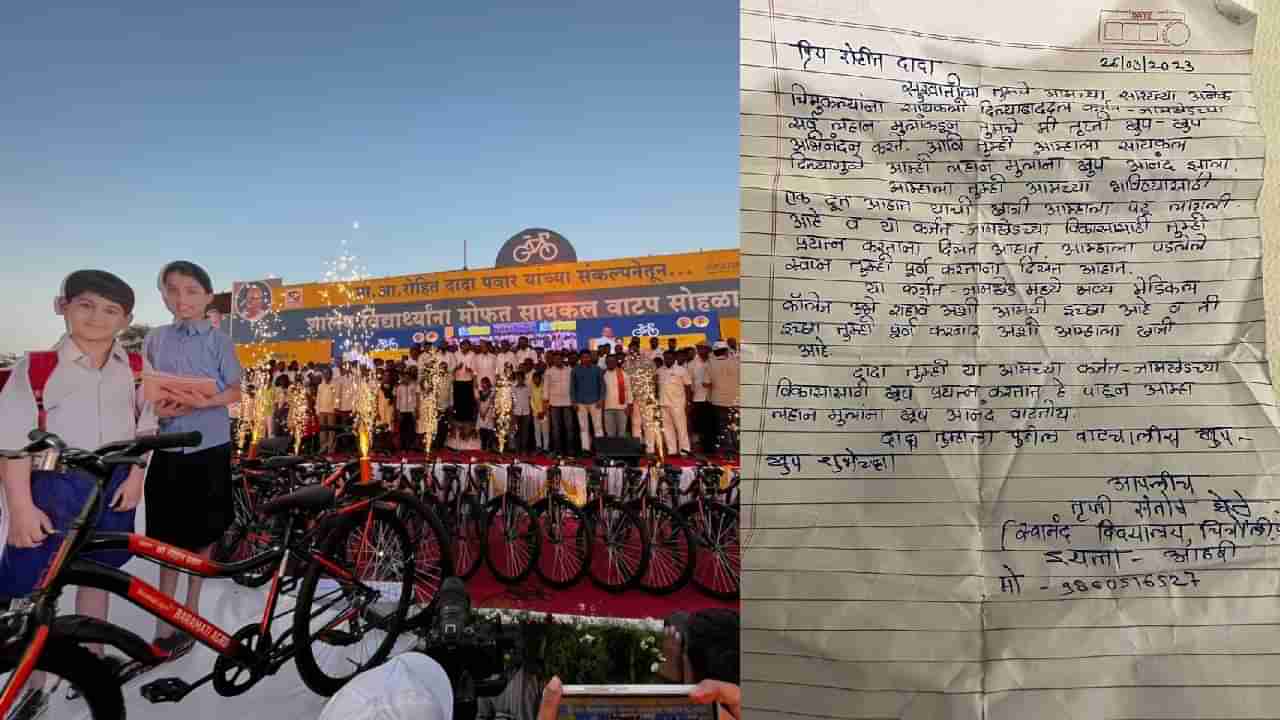 मा.आ.रोहित दादा पवार यांच्या संकल्पनेतून...
शालेय विद्यार्थ्यांना मोफत सायकल वाटप सोहळा
BARAMATI AGRO
DATE
26/03/2023
प्रिय रोहीत दादा
सुरवातीला तुमचे आमच्या सारख्या अनेक
चिमुकल्यांना सायकली दिल्याबद्दल कर्जत-जामखेडच्या
सर्व लहान मुलांकडून तुमचे मी तृप्ती खुप-खुप
अभिनंदन करते. आणि तुम्ही आम्हाला सायकल
दिल्यामुळे आम्ही लहान मुलांना खुप आनंद झाला.
आम्हाला तुम्ही आमच्या भविष्यासाठी
एक दूत आहात याची खात्री आम्हाला पटू लागली
आहे व या कर्जत-जामखेडच्या विकासासाठी तुम्ही
प्रयत्न करताना दिसत आहात. आम्हाला पडलेले
स्वप्न तुम्ही पूर्ण करताना दिसत आहात.
या कर्जत-जामखेड मध्ये भव्य मेडिकल
कॉलेज उभे राहावे अशी आमची इच्छा आहे व ती
इच्छा तुम्ही पूर्ण करवार अशी आम्हाला खात्री
आहे.
दादा तुम्ही या आमच्या कर्जत-जामखेडच्या
विकासासाठी खुप प्रयत्न करतात हे पाहून आम्हा
लहान मुलांना खुप आनंद वाटतोय.
दादा तुम्हाला पुढील वाटचालीस खुप-
खुप शुभेच्छा
आपलीच
तृप्ती संतोष
(स्वानंद विद्यालय,
इयत्ता - आठवी
मो - 9860516527